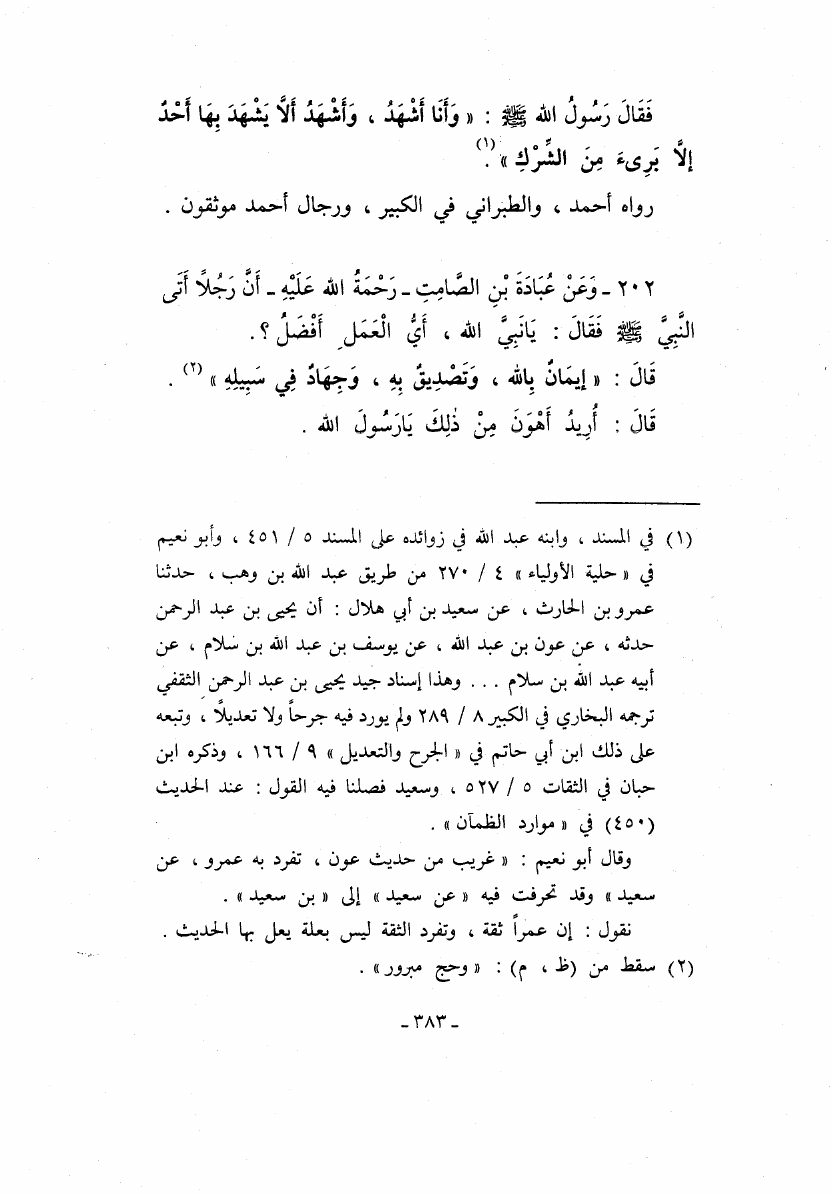 فَقَالَ رَسُولُ اللهِ ﷺ : « وَأَنَا أَشْهَدُ ، وَأَشْهَدُ أَلاَّ يَشْهَدَ بِهَا أَحَدٌ
إلاَّ بَرِىءَ مِنَ الشِّرْكِ »(١).
رواه أحمد ، والطبراني في الكبير ، ورجال أحمد موثقون .
٢٠٢ ـ وَعَنْ عُبَادَةَ بْنِ الصَّامِتِ ـ رَحْمَةُ اللهِ عَلَيْهِ ـ أَنَّ رَجُلاً أَتَى
النَّبِيَّ ﷺ فَقَالَ : يَانَبِيَّ اللهِ ، أَيُّ الْعَمَلِ أَفْضَلُ ؟.
قَالَ : « إيمَانٌ بِاللهِ ، وَتَصْدِيقٌ بِهِ ، وَجِهَادٌ فِي سَبِيلِهِ »(٢) .
قَالَ : أُرِيدُ أَهْوَنَ مِنْ ذٰلِكَ يَارَسُولَ اللهِ .
(١) في المسند ، وابنه عبد الله في زوائده على المسند ٥ / ٤٥١ ، وأبو نعيم
في « حلية الأولياء » ٤ / ٢٧٠ من طريق عبد الله بن وهب ، حدثنا
عمرو بن الحارث ، عن سعيد بن أبي هلال : أن يحيى بن عبد الرحمن
حدثه ، عن عون بن عبد الله ، عن يوسف بن عبد الله بن سلام ، عن
أبيه عبد الله بن سلام ... وهذا إسناد جيد يحيى بن عبد الرحمن الثقفي
ترجمه البخاري في الكبير ٨ / ٢٨٩ ولم يورد فيه جرحاً ولا تعديلاً ، وتبعه
على ذلك ابن أبي حاتم في « الجرح والتعديل » ٩ / ١٦٦ ، وذكره ابن
حبان في الثقات ٥ / ٥٢٧ ، وسعيد فصلنا فيه القول : عند الحديث
(٤٥٠) في « موارد الظمآن » .
وقال أبو نعيم : « غريب من حديث عون ، تفرد به عمرو ، عن
سعيد » وقد تحرفت فيه « عن سعيد » إلى « بن سعيد » .
نقول : إن عمراً ثقة ، وتفرد الثقة ليس بعلة يعل بها الحديث .
(٢) سقط من (ظ ، م) : « وحج مبرور » .
ـ ٣٨٣ ـ